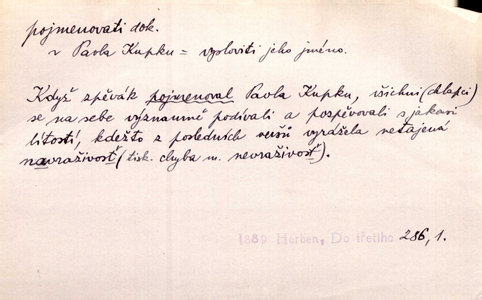 pojmenovati dok.
v Pavla Kupku = vysloviti jeho jméno.
Když zpěvák pojmenoval Pavla Kupku, všichni (chlapci)
se na sebe významně podívali a pozpěvovali s jakousi
lítostí, kdežto z posledních veršů vyrážela netajená
navraživosť (tisk. chyba m. nevraživosť).
1889 Herben, Do třetího 286, 1.